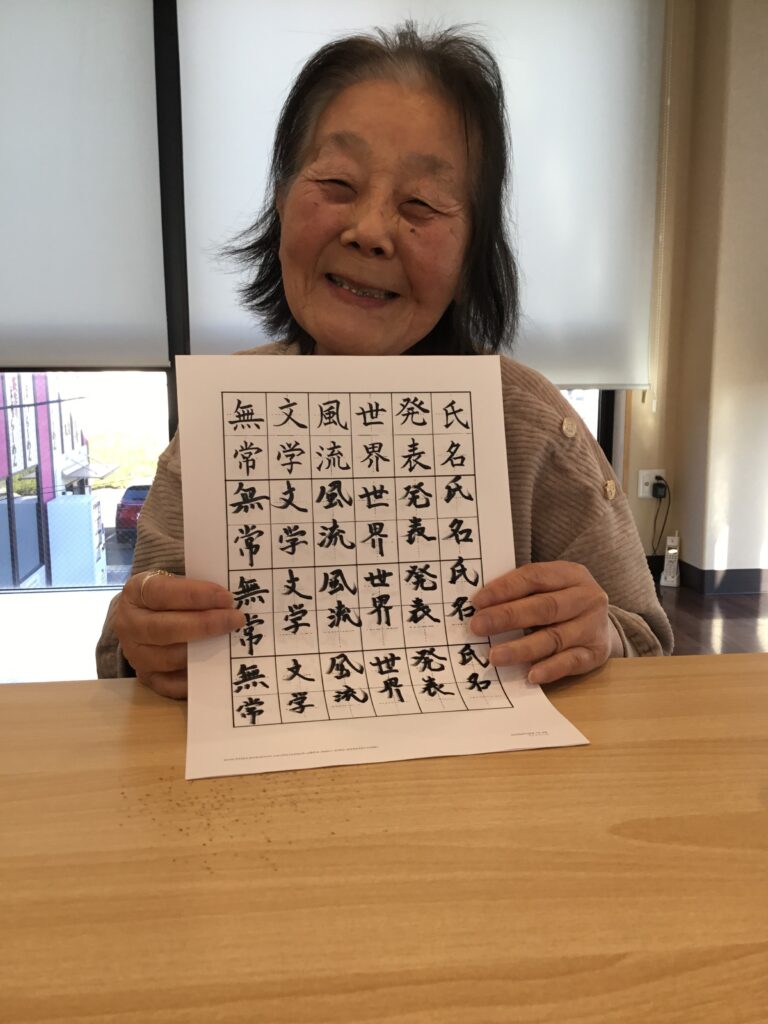 氏名氏名氏名氏名
発表発表発表発表
世界世界世界世界
風流風流風流風流
文学文学文学文学
無常無常無常無常